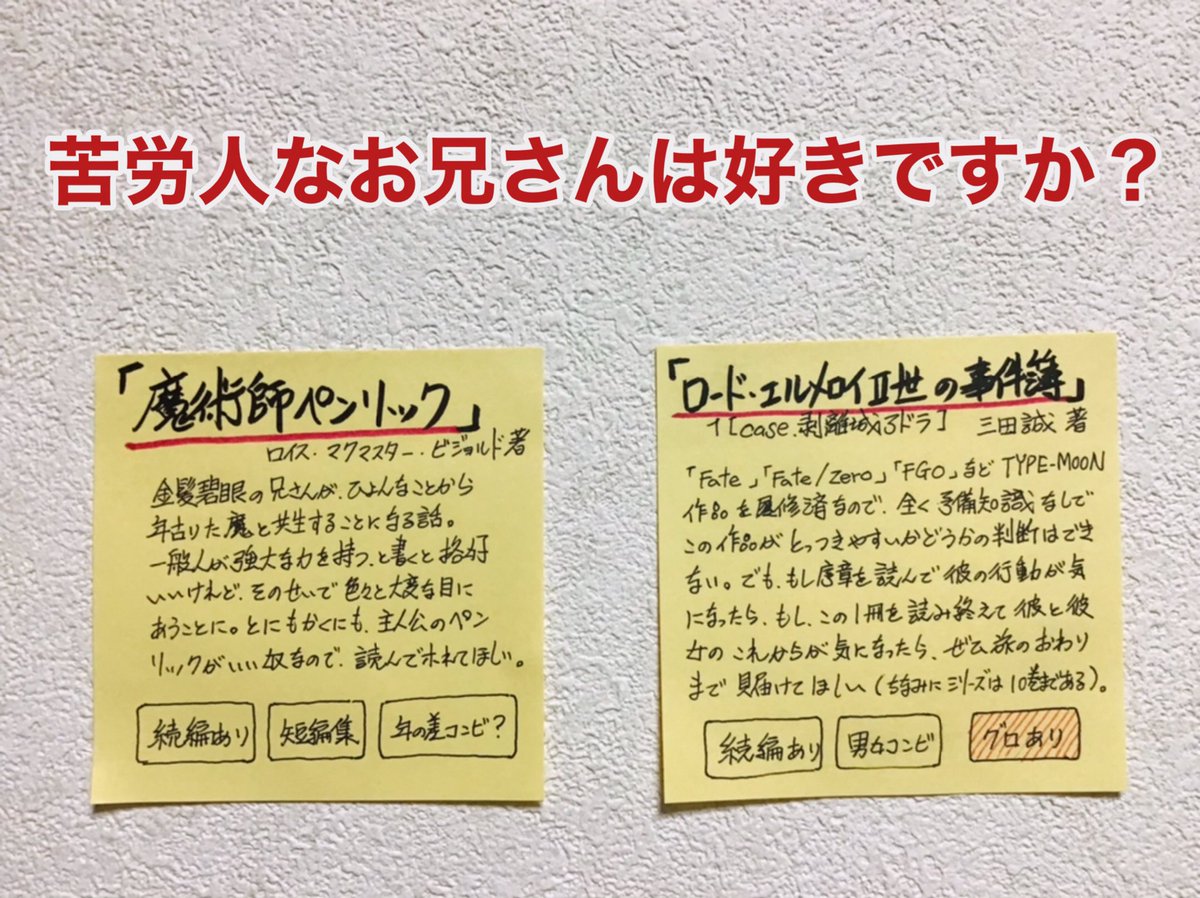 苦労人なお兄さんは好きですか？
「魔術師ペンリック」
ロイス・マクマスター・ビジョルド著
金髪碧眼の兄さんが、ひょんなことから
年古りた魔と共生することになる話。
一般人が強大な力を持つ、と書くと格好
いいけれど、そのせいで色々と大変な目に
あうことに。とにもかくにも、主人公のペン
リックがいい奴なので、読んでホれてほしい。
続編あり
短編集
年の差コンビ？
「ロード・エルメロイⅡ世の事件簿」
1［case.剥離城アドラ］ 三田誠 著
「Fate」「Fate/Zero」「FGO」など TYPE-MOON
作品を履修済なので、全く予備知識なしで
この作品がとっつきやすいかどうかの判断はでき
ない。でも、もし序章を読んで彼の行動が気
になったら、もし、この1冊を読み終えて彼と彼
女のこれからが気になったら、ぜひ旅のおわり
まで見届けてほしい（ちなみにシリーズは10巻まである）。
続編あり
男女コンビ
グロあり